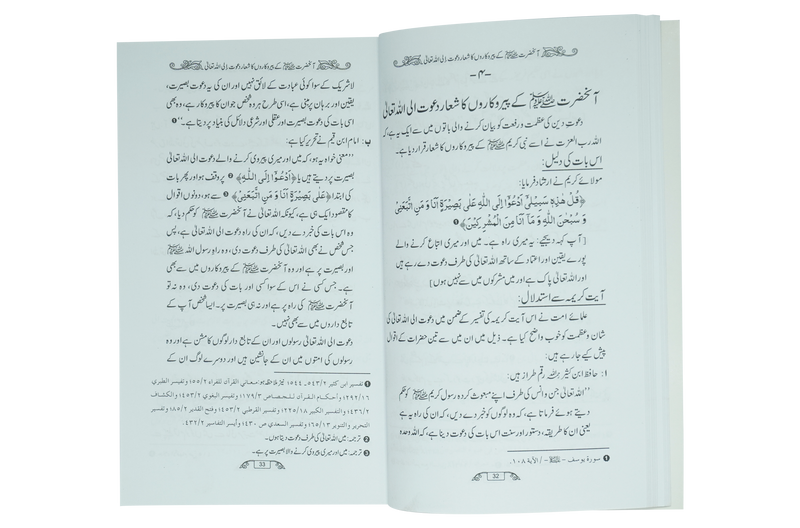 آنحضرت ﷺ کے پیروکاروں کا شعار دعوت الی اللہ تعالیٰ
-۴-
آنحضرت ﷺ کے پیروکاروں کا شعار دعوت الی اللہ تعالیٰ
دعوتِ دین کی عظمت و رفعت کو بیان کرنے والی باتوں میں سے ایک یہ ہے کہ
اللہ رب العزت نے اسے نبی کریم ﷺ کے پیروکاروں کا شعار قرار دیا ہے۔
اس بات کی دلیل:
مولائے کریم نے ارشاد فرمایا:
﴿قُلْ هٰذِهٖ سَبِيْلِيْٓ اَدْعُوْٓا اِلَى اللّٰهِ عَلٰى بَصِيْرَةٍ اَنَا وَ مَنِ اتَّبَعَنِيْ
وَ سُبْحٰنَ اللّٰهِ وَ مَآ اَنَا مِنَ الْمُشْرِكِيْنَ﴾ ❶
[آپ کہہ دیجیے: یہ میری راہ ہے۔ میں اور میری اتباع کرنے والے
پورے یقین اور اعتماد کے ساتھ اللہ تعالیٰ کی طرف دعوت دے رہے ہیں
اور اللہ تعالیٰ پاک ہے اور میں مشرکوں میں سے نہیں ہوں]
آیت کریمہ سے استدلال:
علمائے امت نے اس آیت کریمہ کی تفسیر کے ضمن میں دعوت الی اللہ تعالیٰ کی
شان و عظمت کو خوب واضح کیا ہے۔ ذیل میں ان میں سے تین حضرات کے اقوال
پیش کیے جا رہے ہیں:
ا: حافظ ابن کثیر رحمہ اللہ رقم طراز ہیں:
’’اللہ تعالیٰ جن و انس کی طرف اپنے مبعوث کردہ رسول کریم ﷺ کو حکم
دیتے ہوئے فرماتا ہے، کہ وہ لوگوں کو خبر دے دیں، کہ ان کی راہ یہ ہے
یعنی ان کا طریقہ، دستور اور سنت اس بات کی دعوت دینا ہے، کہ اللہ وحدہ
❶ سورة يوسف - - / الآية ۱۰۸.
32
آنحضرت ﷺ کے پیروکاروں کا شعار دعوت الی اللہ تعالیٰ
لاشریک کے سوا کوئی عبادت کے لائق نہیں اور ان کی یہ دعوت بصیرت،
یقین اور برہان پر مبنی ہے، اسی طرح ہر وہ شخص جو ان کا پیروکار ہے، وہ بھی
اسی بات کی دعوت بصیرت اور عقلی اور شرعی دلائل کی بنیاد پر دیتا ہے۔‘‘ ❶
ب: امام ابن قیم نے تحریر کیا ہے:
’’معنی خواہ یہ ہو، کہ میں اور میری پیروی کرنے والے دعوت الی اللہ تعالیٰ
بصیرت پر دیتے ہیں یا ﴿اَدْعُوْٓا اِلَى اللّٰهِ﴾ ❷ پر وقف ہو اور پھر بات
کی ابتدا ﴿عَلٰى بَصِيْرَةٍ اَنَا وَ مَنِ اتَّبَعَنِيْ﴾ ❸ سے ہو، دونوں اقوال
کا مقصود ایک ہی ہے، کیونکہ اللہ تعالیٰ نے آنحضرت ﷺ کو حکم دیا، کہ
وہ اس بات کی خبر دے دیں، کہ ان کی راہ دعوت الی اللہ تعالیٰ ہے، پس
جس شخص نے بھی اللہ تعالیٰ کی طرف دعوت دی، وہ راہِ رسول اللہ ﷺ
اور بصیرت پر ہے اور وہ آنحضرت ﷺ کے پیروکاروں میں سے بھی
ہے۔ جس کسی نے اس کے سوا کسی اور بات کی دعوت دی، وہ نہ تو
آنحضرت ﷺ کی راہ پر ہے اور نہ ہی بصیرت پر۔ ایسا شخص آپ کے
تابع داروں میں سے بھی نہیں۔
دعوت الی اللہ تعالیٰ رسولوں اور ان کے تابع دار لوگوں کا مشن ہے اور وہ
رسولوں کی امتوں میں ان کے جانشین ہیں اور دوسرے لوگ ان کے
❶ تفسير ابن كثير ۵۴۳/۲ ـ ۵۴۴. نیز ملاحظہ ہو: معاني القرآن للفراء ۵۵/۲ وتفسير الطبري
۲۹۲/۱۶ وأحكام القرآن للجصاص ۱۷۹/۳ وتفسير البغوي ۴۵۳/۲ والكشاف
۴۳۶/۲ والتفسير الكبير ۲۲۵/۱۸ وتفسير القرطبي ۴۵۳/۲ وفتح القدير ۸۵/۲ وتفسير
التحرير والتنوير ۶۵/۱۳ وتفسير السعدي ص ۴۳۰ وأيسر التفاسير ۴۳۲/۲.
❷ ترجمہ: میں اللہ تعالیٰ کی طرف دعوت دیتا ہوں۔
❸ ترجمہ: میں اور میری پیروی کرنے والا بصیرت پر ہے۔
33